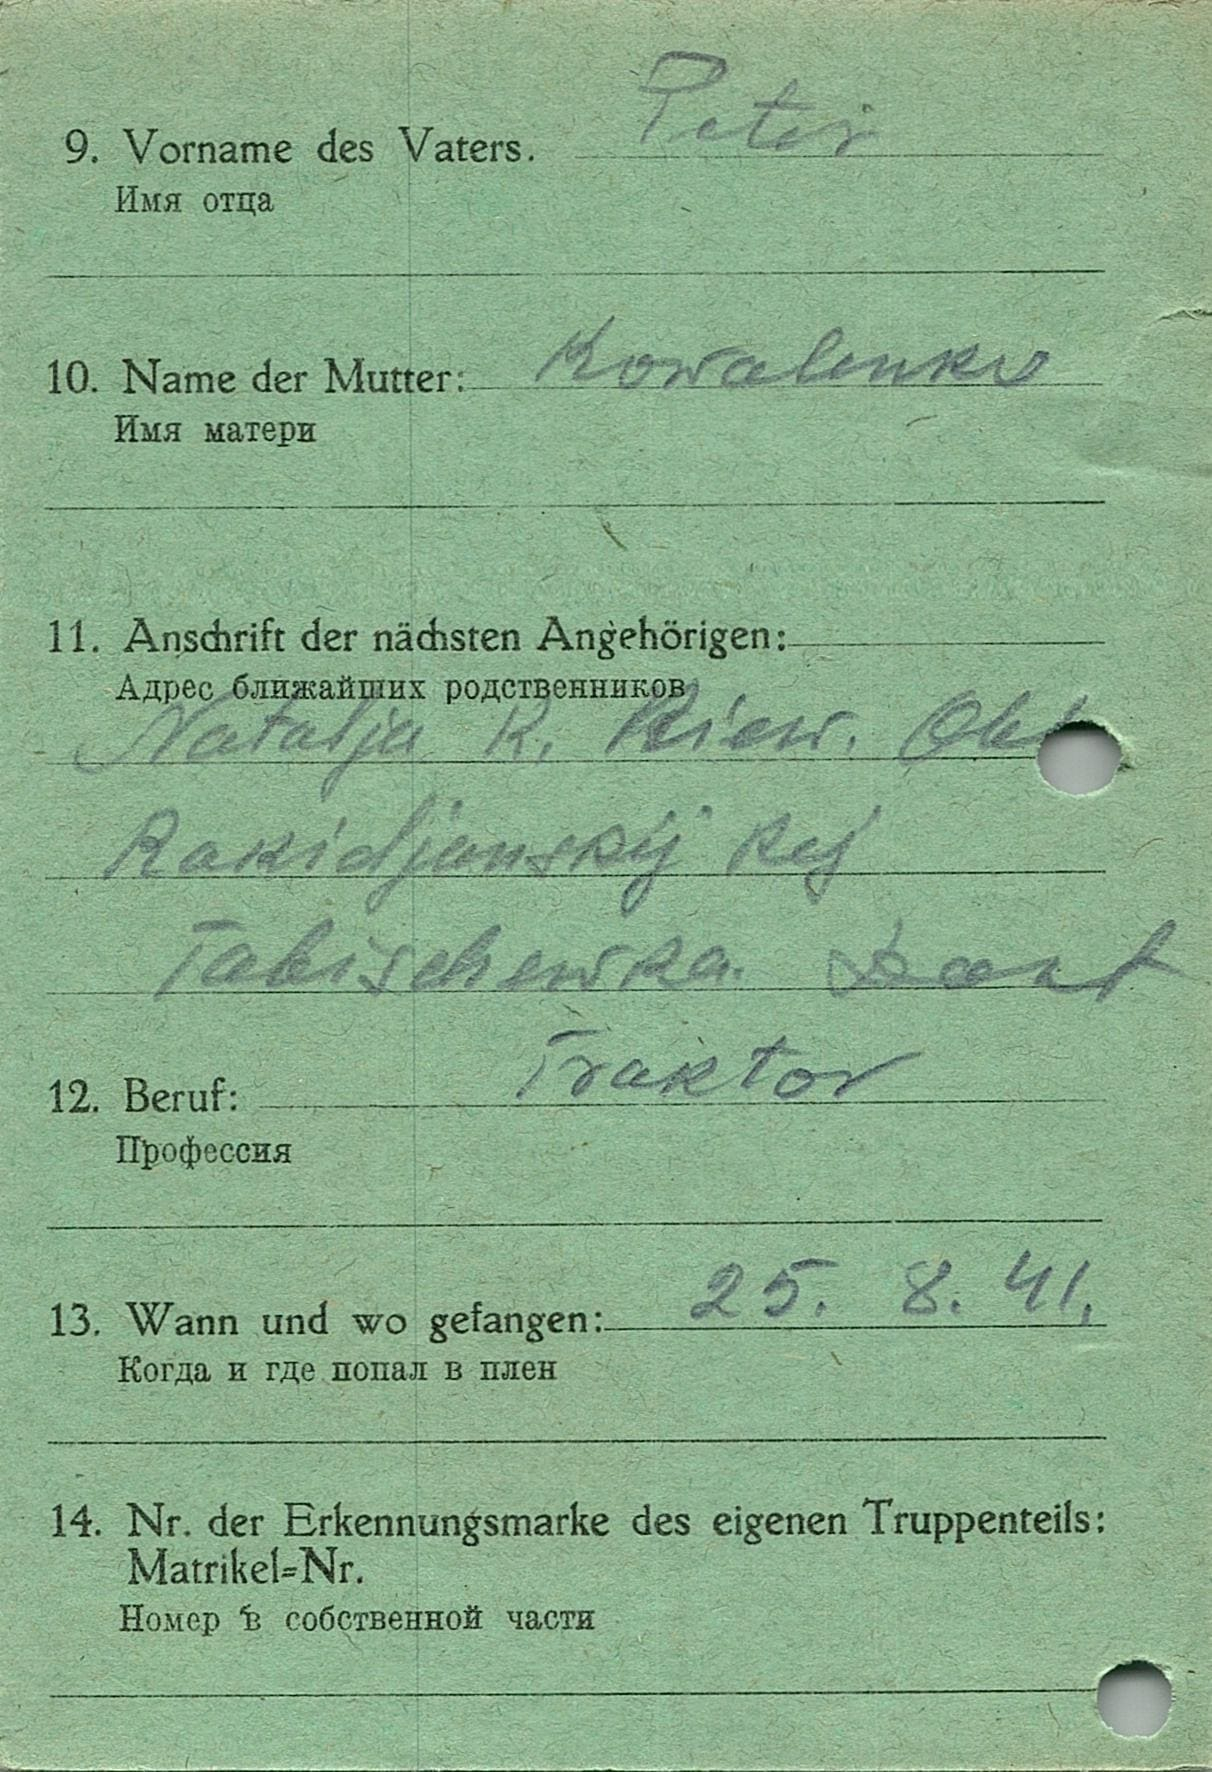 9. Vorname des Vaters. Peter
Имя отца
10. Name der Mutter: Kowalenko
Имя матери
11. Anschrift der nächsten Angehörigen:
Адрес ближайших родственников
Natalja K. Kiew. Obl
Rakidjanskij Rej
Tabischewka.
12. Beruf: Traktor
Профессия
13. Wann und wo gefangen: 25. 8. 41.
Когда и где попал в плен
14. Nr. der Erkennungsmarke des eigenen Truppenteils:
Matrikel=Nr.
Номер в собственной части